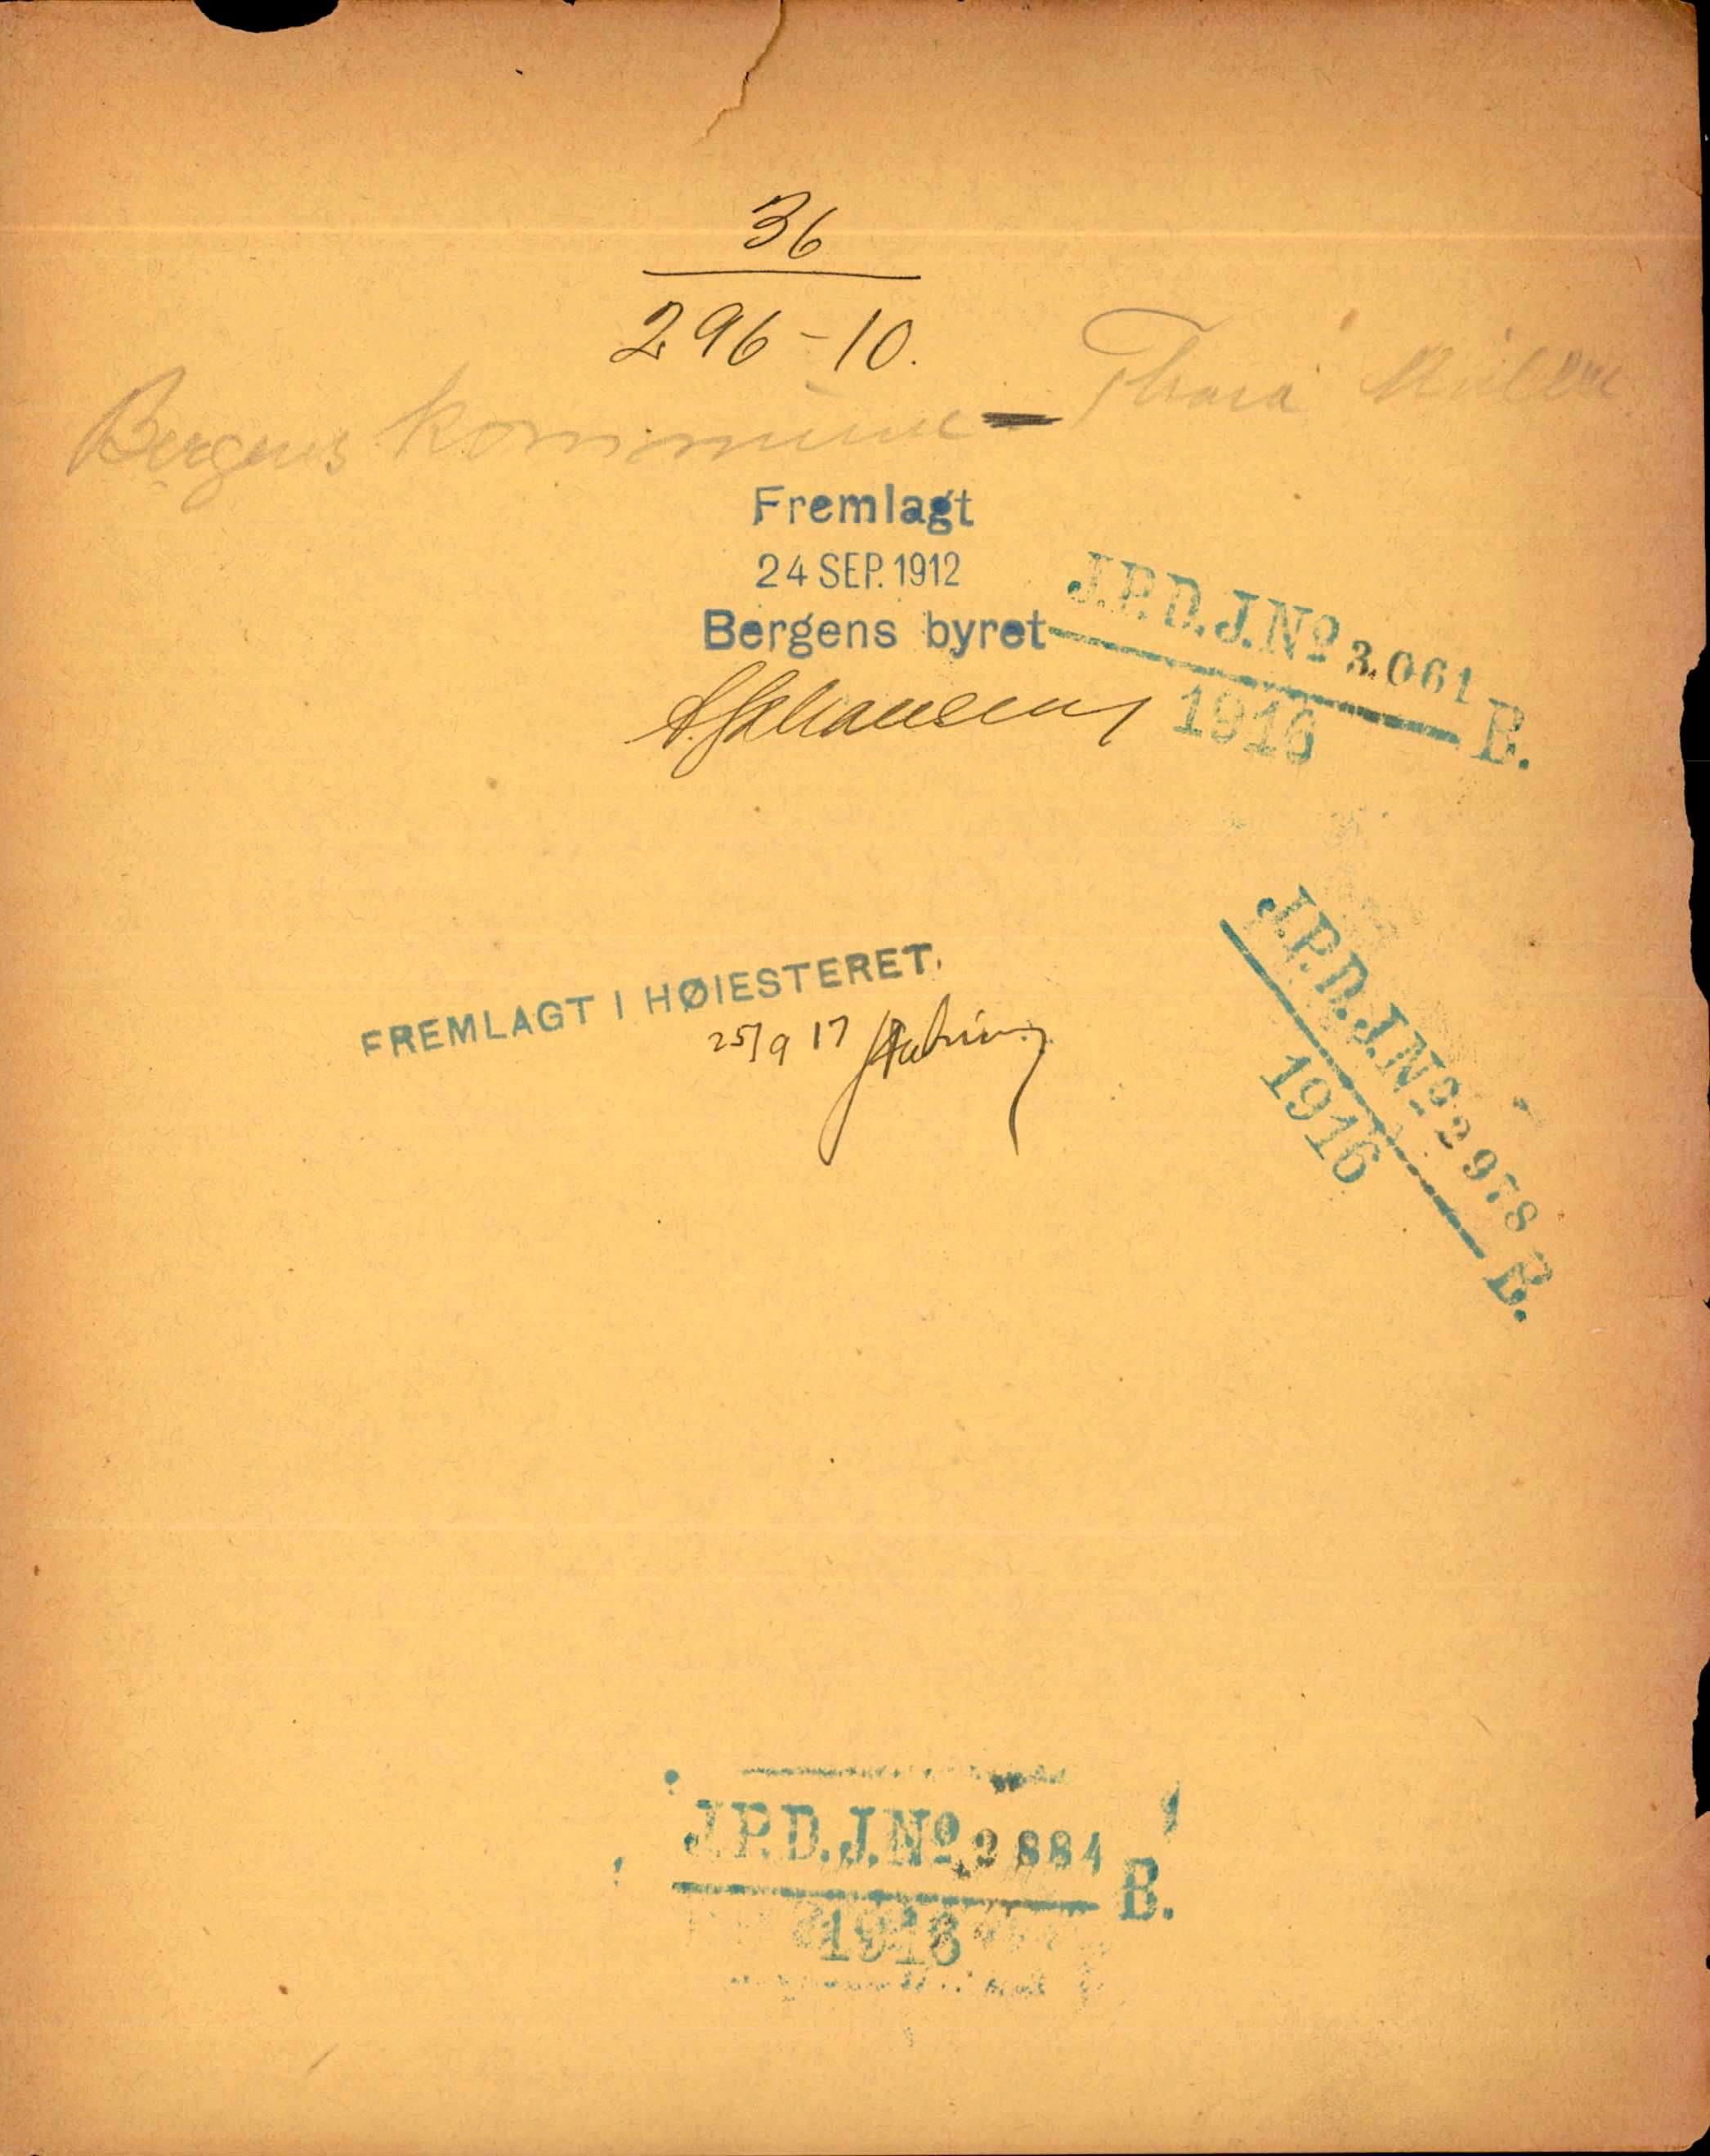 36
296-10.
Bergens kommune - Thora
Fremlagt
24 SEP. 1912
Bergens byret
J.P.D.J.Nº 3.061
1916 B.
FREMLAGT I HØIESTERET.
25/9 17
J.P.D.J.Nº 2978
1916 B.
J.P.D.J.Nº 2884
B.